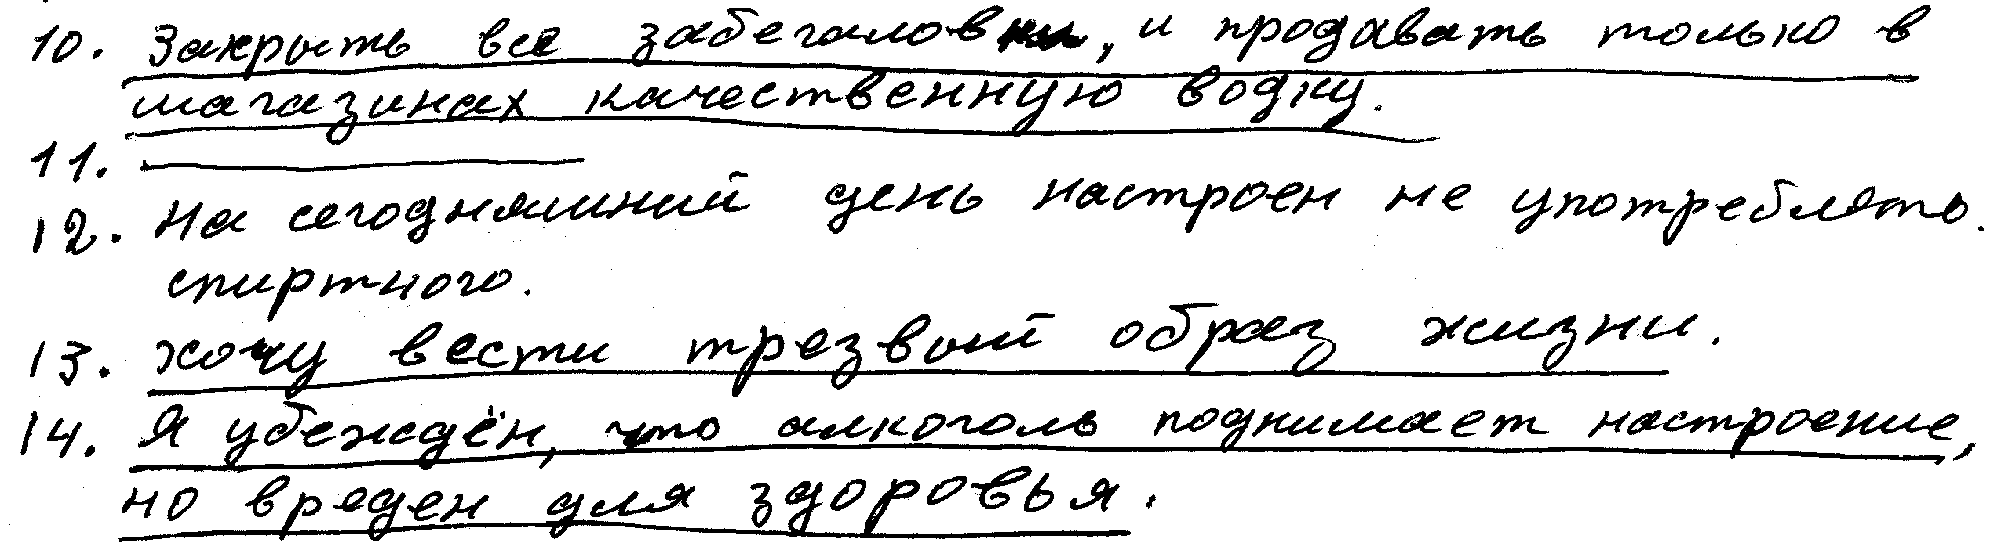 10. Закрыть все забегаловки, и продавать только в
магазинах качественную водку.
11. ———
12. На сегодняшний день настроен не употреблять
спиртного.
13. Хочу вести трезвый образ жизни.
14. Я убеждён, что алкоголь поднимает настроение,
но вреден для здоровья.